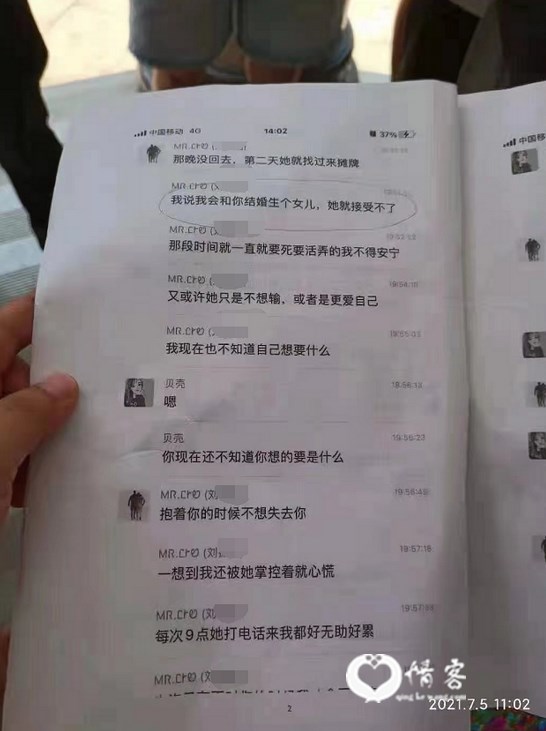 中国移动 4G 14:02 37%
MR.CーO (
那晚没回去，第二天她就找过来摊牌
我说我会和你结婚生个女儿，她就接受不了
MR.CーO (
19:53:53
那段时间就一直就要死要活弄的我不得安宁
MR.CーO (
又或许她只是不想输，或者是更爱自己
MR.CーO (
我现在也不知道自己想要什么
贝壳
嗯
贝壳
你现在还不知道你想的要是什么
MR.CーO (刘
抱着你的时候不想失去你
MR.CーO (刘
19:57:18
一想到我还被她掌控着就心慌
MR.CーO (刘
每次9点她打电话来我都好无助好累
MR.CーO (刘
2
情客
2021.7.5 11:02